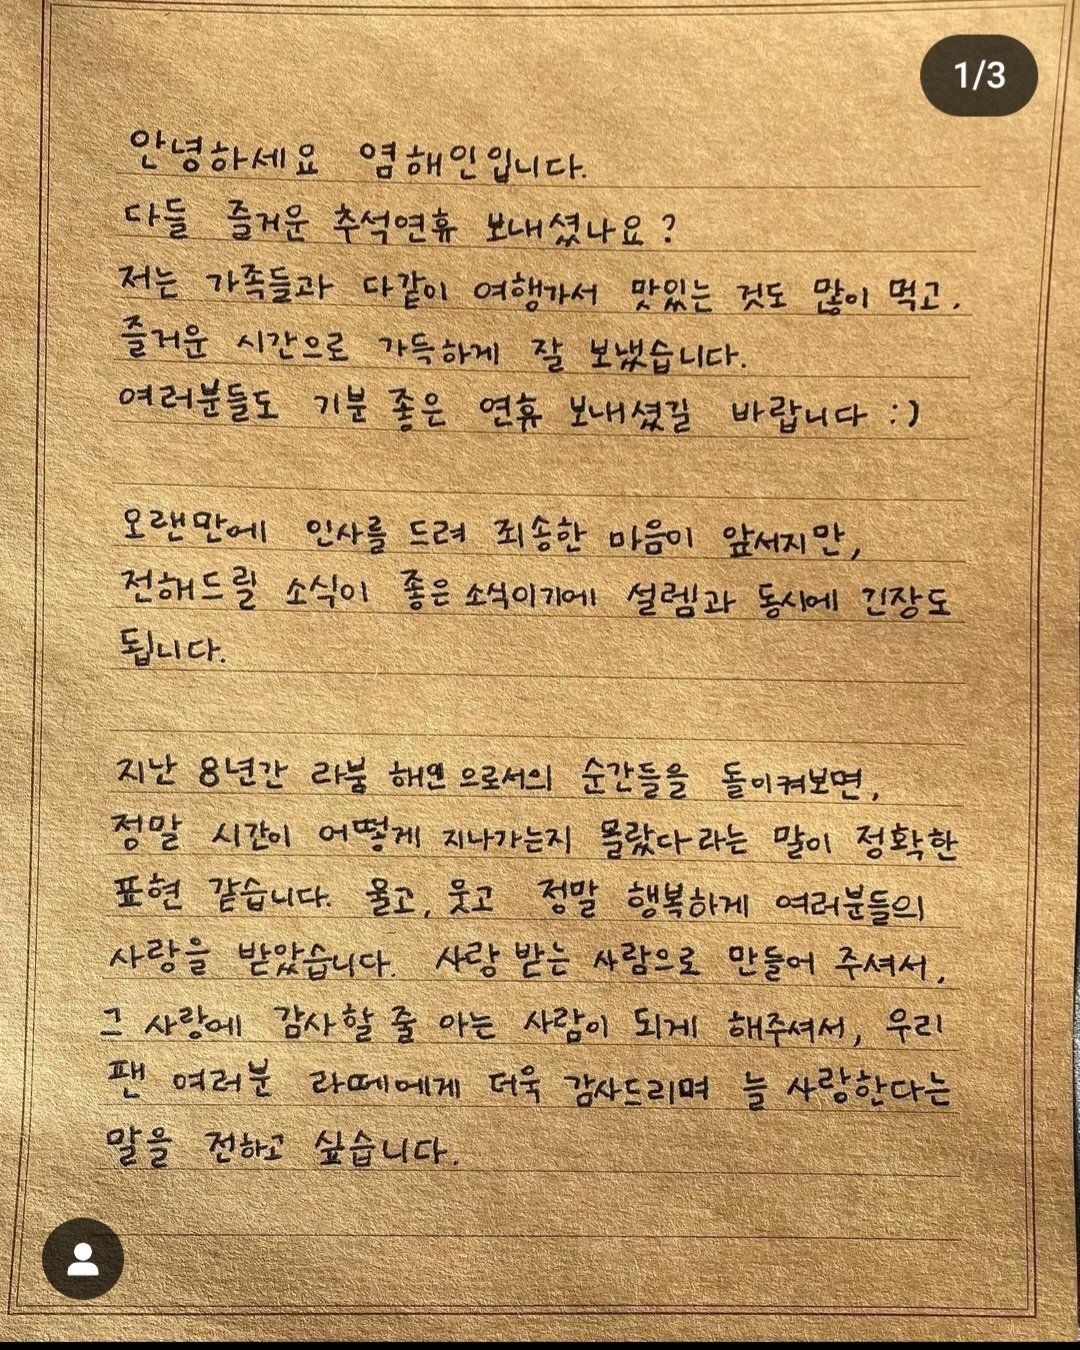 1/3
안녕하세요 염해인입니다.
다들 즐거운 추석연휴 보내셨나요?
저는 가족들과 다같이 여행가서 맛있는 것도 많이 먹고,
즐거운 시간으로 가득하게 잘 보냈습니다.
여러분들도 기분 좋은 연휴 보내셨길 바랍니다 :)
오랜만에 인사를 드려 죄송한 마음이 앞서지만,
전해드릴 소식이 좋은 소식이기에 설렘과 동시에 긴장도
됩니다.
지난 8년간 라붐 해인으로서의 순간들을 돌이켜보면,
정말 시간이 어떻게 지나가는지 몰랐다라는 말이 정확한
표현 같습니다. 울고, 웃고 정말 행복하게 여러분들의
사랑을 받았습니다. 사랑 받는 사람으로 만들어 주셔서,
그 사랑에 감사할 줄 아는 사람이 되게 해주셔서, 우리
팬 여러분 라떼에게 더욱 감사드리며 늘 사랑한다는
말을 전하고 싶습니다.